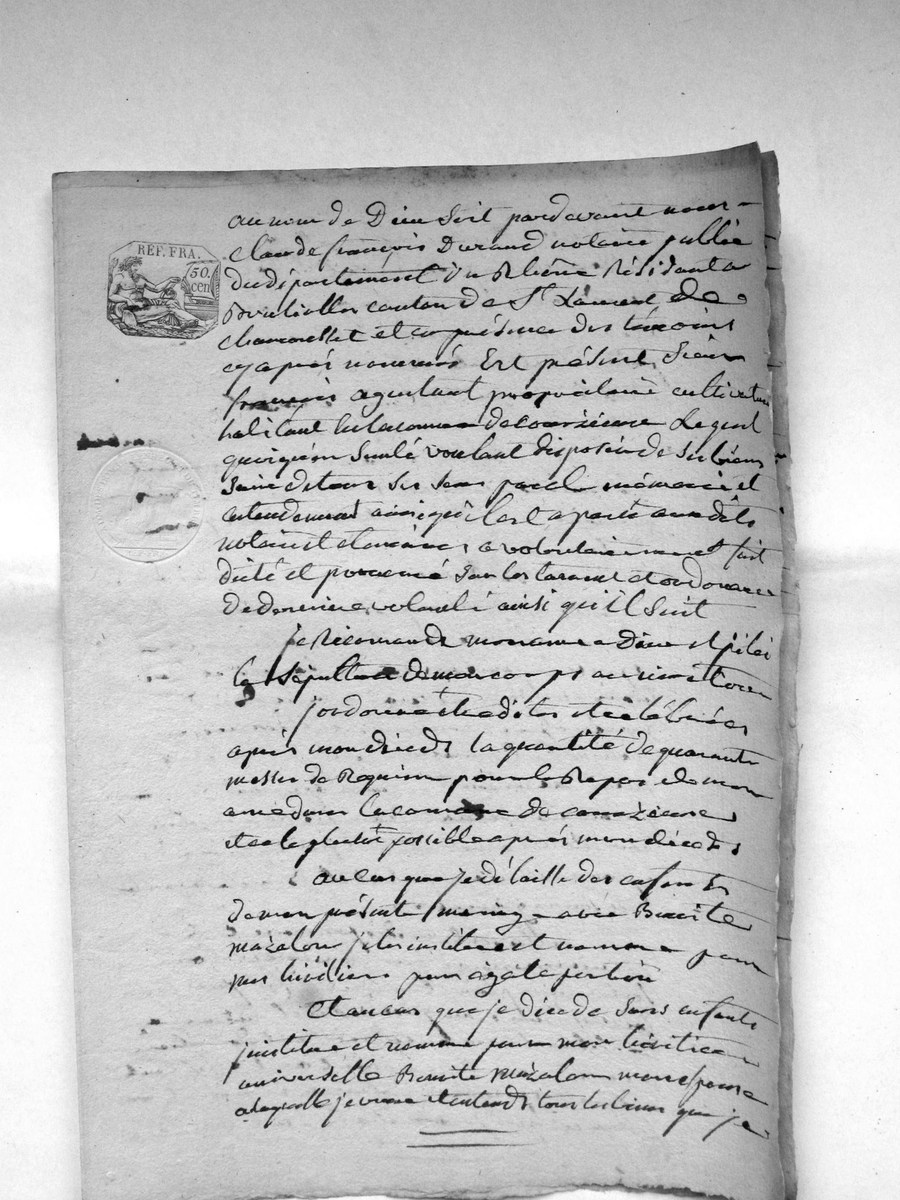 REP. FRA.
50.
cen
au nom de Dieu Soit pardevant nous
claude françois Durand notaire public
du département du Rhône Résidant a
canton de St Laurent de
chamousset et en présence des témoins
cy après nommés Est présent Jean
françois propriétaire cultivateur
habitant la comune de Lequel
quoique voulant disposér de Ses biens
Sain de tous Ses Sens parole mémoire et
entendement ainsi qu'il est aparû audits
notaire et témoins a volontairement fait
dicté et prononcé Son testament et ordonance
de derniere volonté ainsi qu'il Suit
je Recomande mon ame a Dieu et
la Sépulture de mon corps au cimetiere
j'ordonne être dites et célébrées
après mon décéds la quantité de quarante
messes de Requiem pour le Repos de mon
ame dans la comune de
et ce le plustôt possible après mon décéds
au cas que je délaisse des enfants
de mon présent mariage avec Benoite
mazalon je les institue et nomme pour
mes héritiers par égale portion
Et au cas que je décéde Sans enfants
j'institue et nomme pour mon héritiere
universelle Benoite mazalon mon epouse
a laquelle je veux et entends tous les biens que je